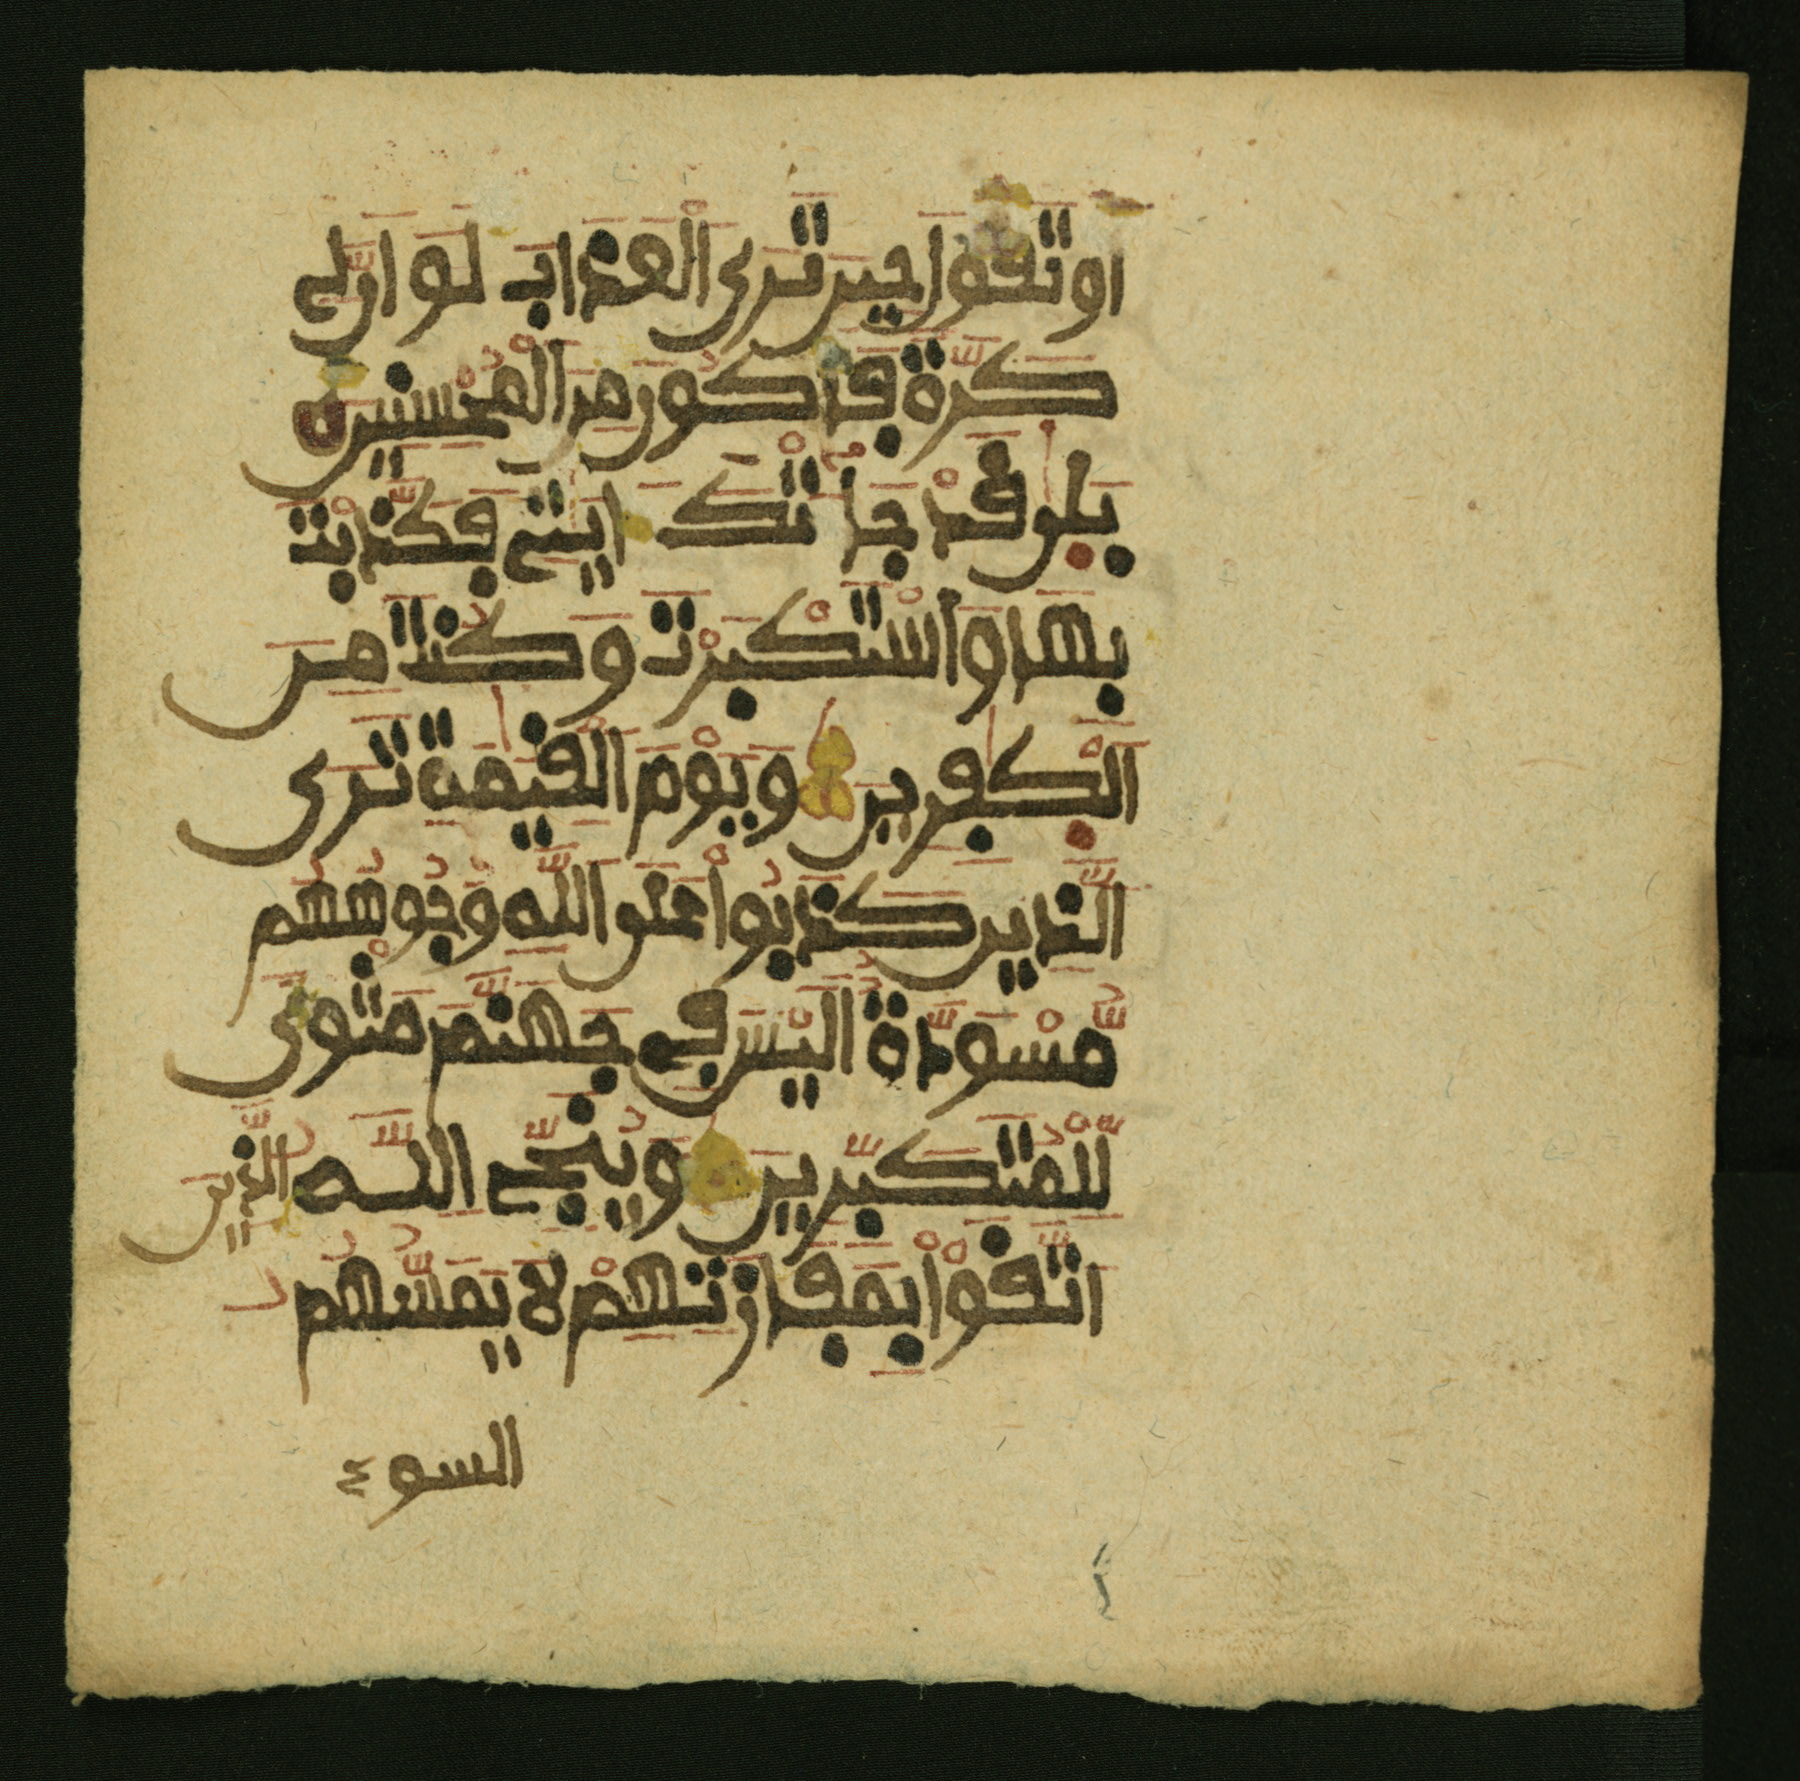 اَوْ تَقُولَ حِينَ تَرَى اَ۬لْعَذَابَ لَوَ اَنَّ لِے
كَرَّةٗ فَأَكُونَ مِنَ اَ۬لْمُحْسِنِينَ
بَلٜىٰ قَدْ جَآءَتْكَ ءَايَٰتِے فَكَذَّبْتَ
بِهَا وَاَسْتَكْبَرْتَ وَكُنتَ مِنَ
اَ۬لْكٰ۪فِرِينَ وَيَوْمَ اَ۬لْقِيَٰمَةِ تَرَى
اَ۬لذِينَ كَذَبُواْ عَلَى اَ۬للَّهِ وُجُوهُهُم
مُّسْوَدَّةٌ اَلَيْسَ فِے جَهَنَّمَ مَثْوىٗ
لِّلْمُتَكَبِّرِينَ وَيُنَجِّے اِ۬للَّهُ اُ۬لذِينَ
اَ۪تَّقَوْاْ بِمَفَازَتِهِمْ لَا يَمَسُّهُمُ
السوء